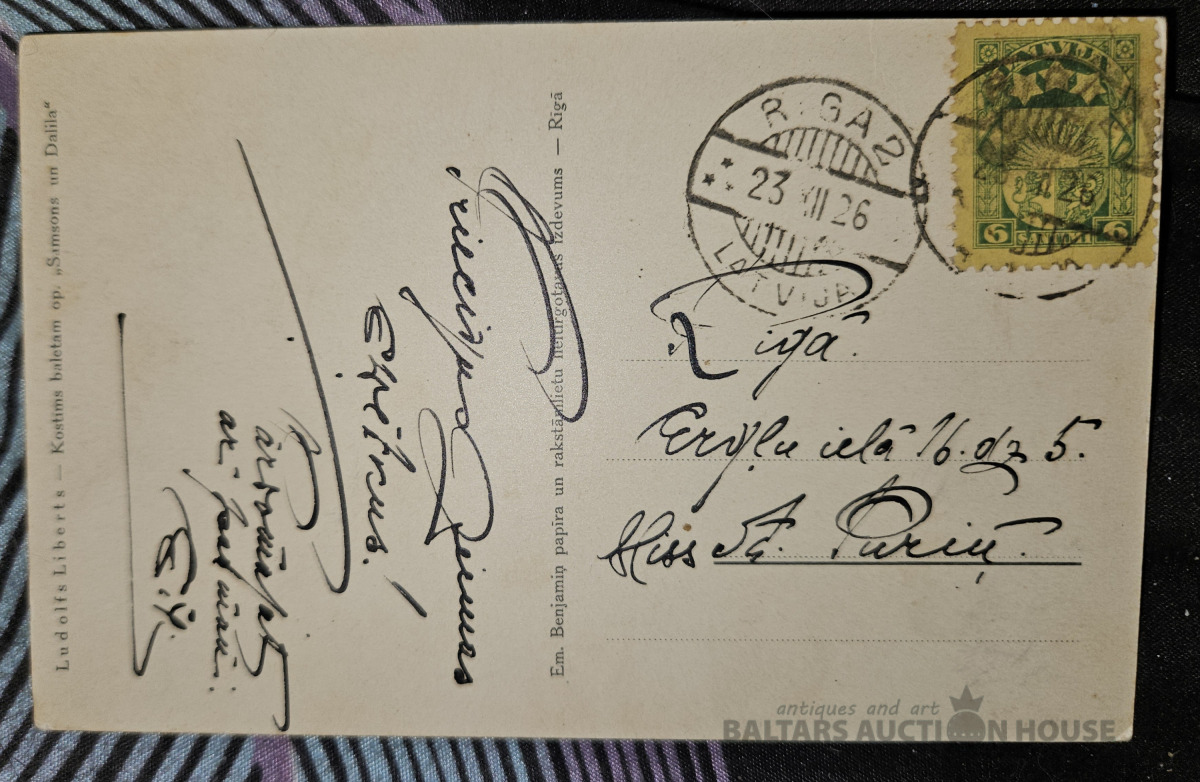 Ludolfs Liberts — Kostims baletam op. „Samsons un Dalila“
Priecīgus Ziemas
svētkus!
ar
E.
Em. Benjamiņ papira un rakstāmlietu lieltirgotavas izdevums — Rīgā
RIGA 2
23 XII 26
LATVIJA
LATVIJA
6 SANTIMI 6
Rīgā.
Ērgļu ielā 16. dz 5.
Miss St. Puriņ.
antiques and art
BALTARS AUCTION HOUSE